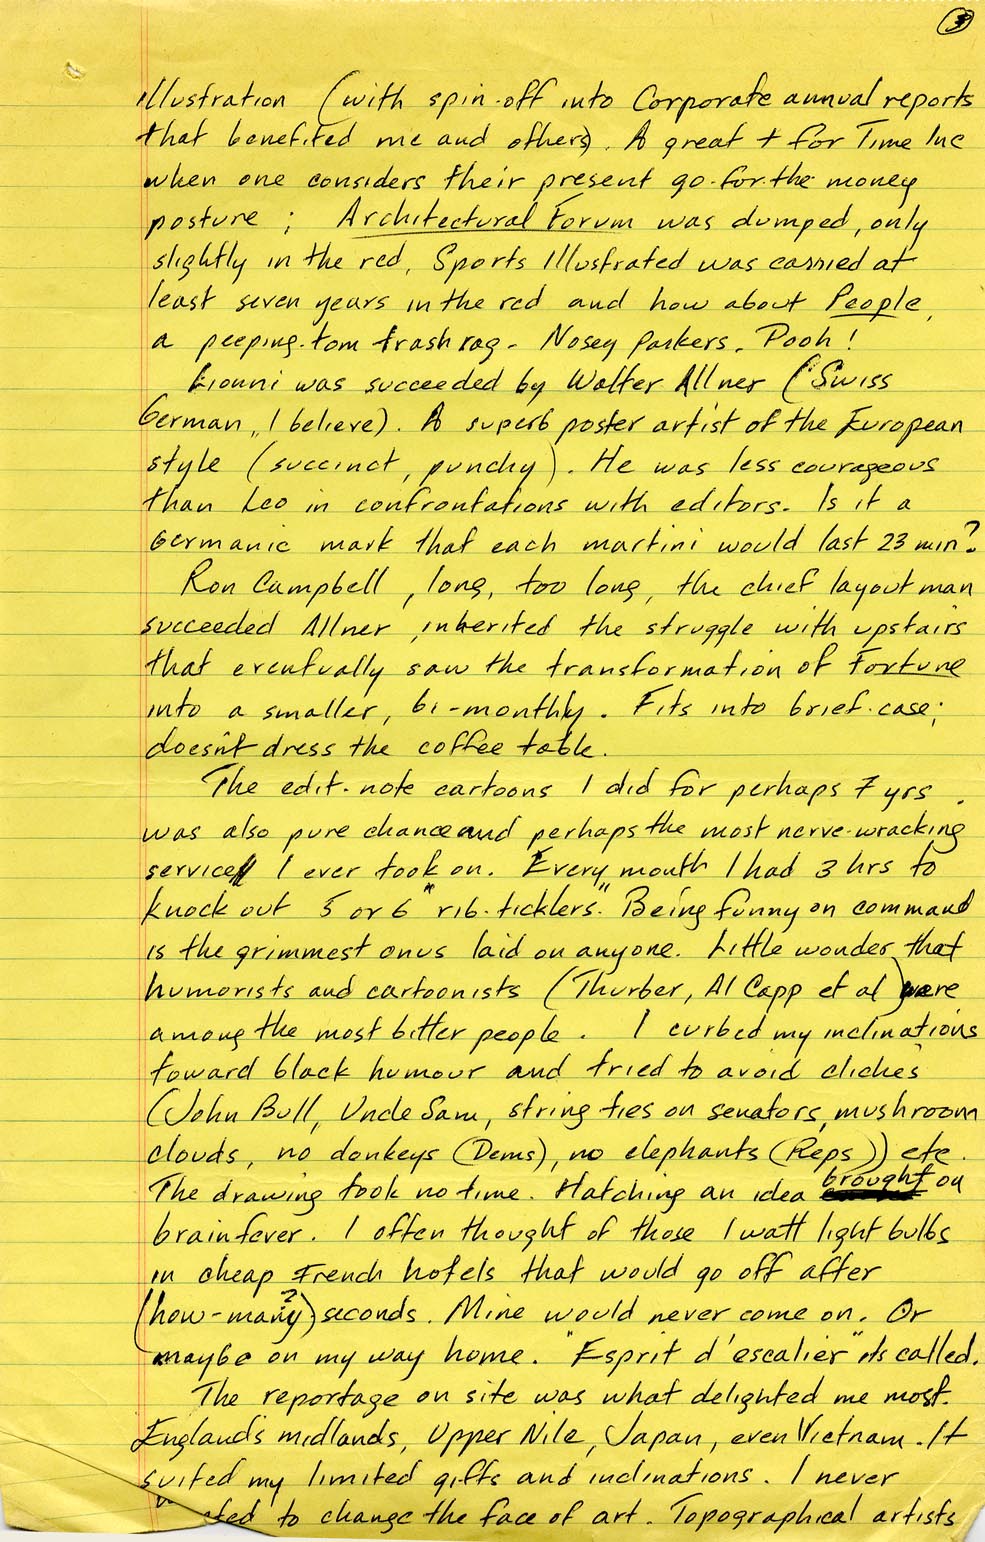 3
illustration (with spin-off into Corporate annual reports
that benefited me and others). A great + for Time Inc
when one considers their present go-for-the money
posture ; Architectural Forum was dumped, only
slightly in the red, Sports Illustrated was carried at
least seven years in the red and how about People,
a peeping-tom trash rag. Nosey Parkers. Pooh!
Lionni was succeeded by Walter Allner (Swiss
German, I believe). A superb poster artist of the European
style (succinct, punchy). He was less courageous
than Leo in confrontations with editors. Is it a
Germanic mark that each martini would last 23 min?
Ron Campbell, long, too long, the chief layout man
succeeded Allner, inherited the struggle with upstairs
that eventually saw the transformation of Fortune
into a smaller, bi-monthly. Fits into brief-case;
doesn't dress the coffee table.
The edit-note cartoons I did for perhaps 7 yrs.
was also pure chance and perhaps the most nerve-wracking
service I ever took on. Every month I had 3 hrs to
knock out 5 or 6 "rib-ticklers." Being funny on command
is the grimmest onus laid on anyone. Little wonder that
humorists and cartoonists (Thurber, Al Capp et al) were
among the most bitter people. I curbed my inclinations
toward black humour and tried to avoid clichés
(John Bull, Uncle Sam, string ties on senators, mushroom
clouds, no donkeys (Dems), no elephants (Reps)) etc.
The drawing took no time. Hatching an idea brought on
brainfever. I often thought of those 1 watt light bulbs
in cheap French hotels that would go off after
(how-many?) seconds. Mine would never come on. Or
maybe on my way home. "Esprit d'escalier" its called.
The reportage on site was what delighted me most.
England's midlands, Upper Nile, Japan, even Vietnam. It
suited my limited gifts and inclinations. I never
to change the face of art. Topographical artists